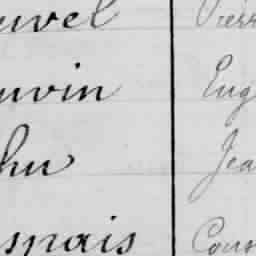 uvel Pierr
uvin Eug
hu Jea
spais Cons